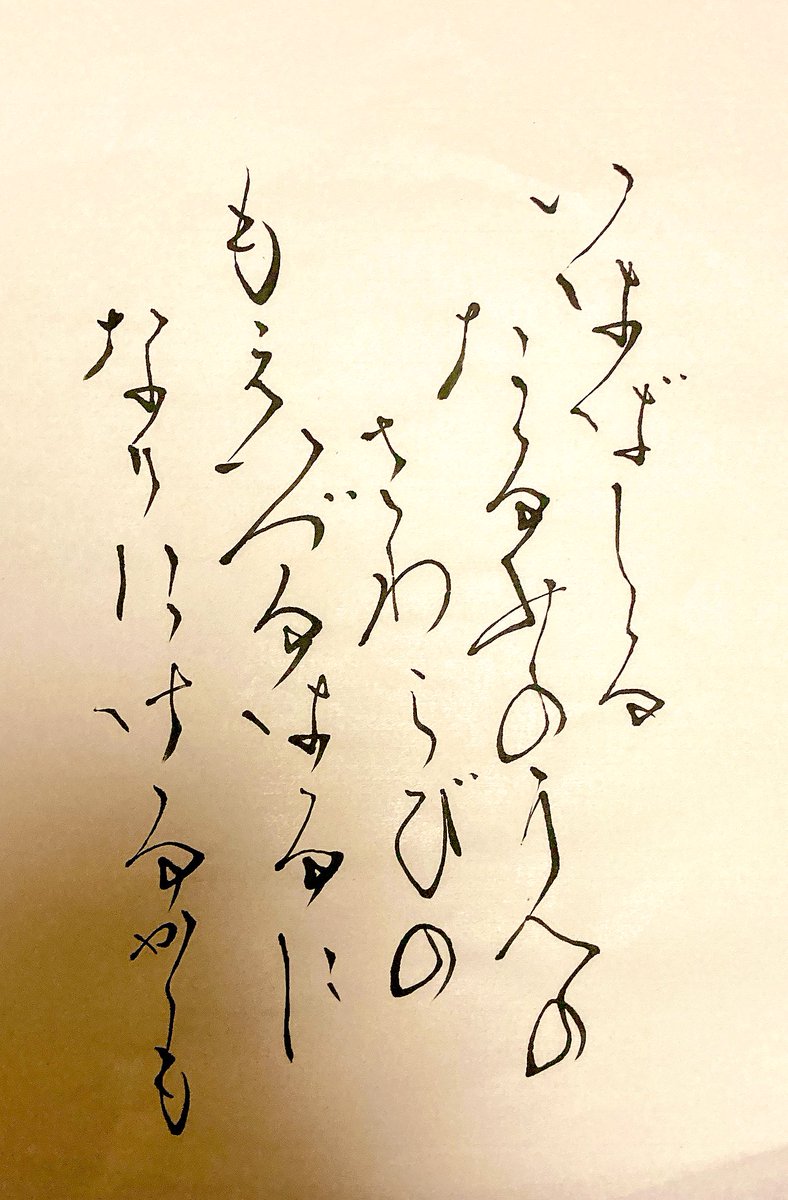 いはばしる
たるみのうへの
さわらびの
もえいづるはるに
なりにけるかも